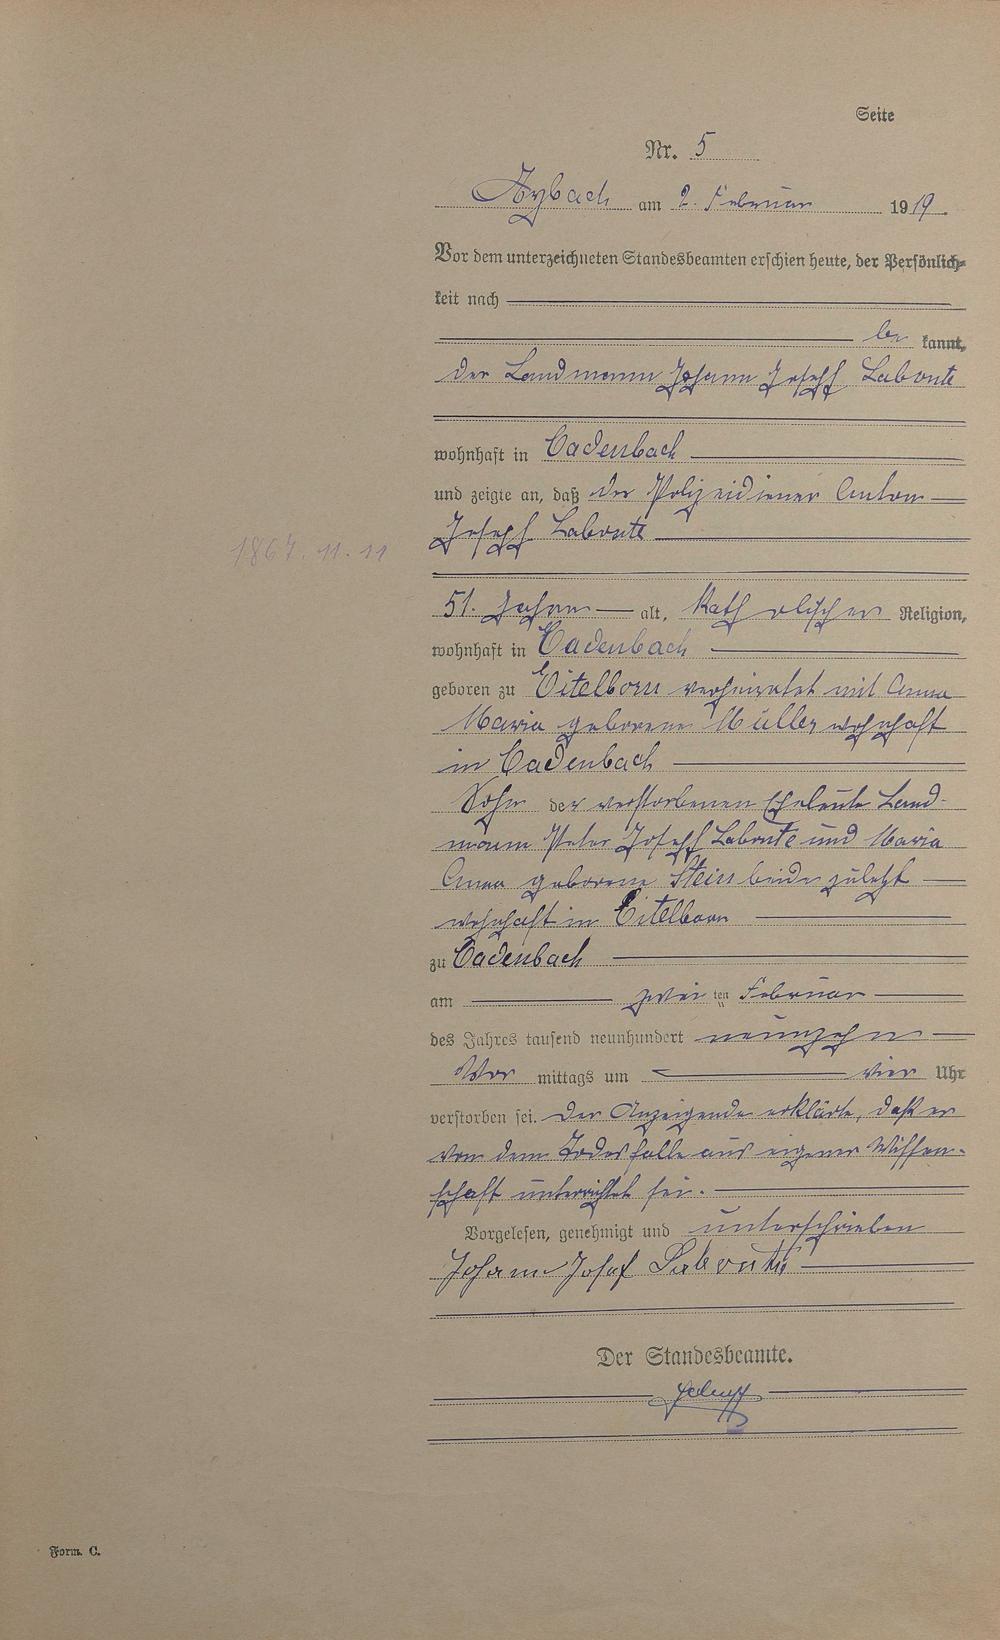 Seite
Nr. 5
Arzbach am 2. Februar 1919.
Vor dem unterzeichneten Standesbeamten erschien heute, der Persönlich-
keit nach
be kannt,
der Landmann Johann Joseph Labonte
wohnhaft in Cadenbach
und zeigte an, daß der Polizeidiener Anton
Joseph Labonte
1867.11.11
51. Jahre alt, Katholischer Religion,
wohnhaft in Cadenbach
geboren zu Eitelborn verheiratet mit Anna
Maria geborene Müller wohnhaft
in Cadenbach
Sohn der verstorbenen Eheleute Land-
mann Peter Joseph Labonte und Maria
Anna geborene Stein beide zuletzt
wohnhaft in Eitelborn
zu Cadenbach
am zwei ten Februar
des Jahres tausend neunhundert neunzehn
Vor mittags um vier Uhr
verstorben sei. Der Anzeigende erklärte, daß er
von dem Todesfalle aus eigener Wissen-
schaft unterrichtet sei.
Vorgelesen, genehmigt und unterschrieben
Johann Josef Labonte
Der Standesbeamte.
Form. C.